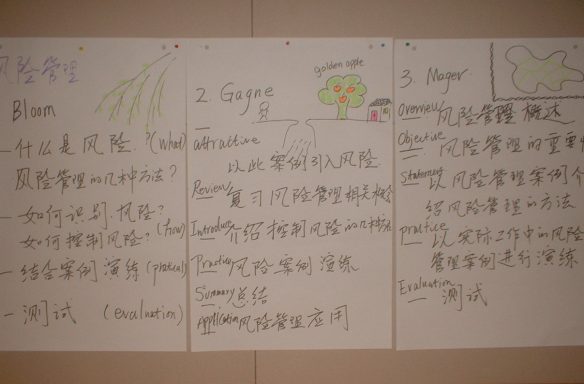 风险管理
Bloom
一什么是风险?(what)
风险管理的几种方法?
一如何识别风险?
如何控制风险?(how)
一结合案例演练(pratical)
一测试 (evaluation)
2. Gagne
golden apple
attrattive
以此案例引入风险.
Review 复习风险管理相关概念
Introduce 介绍控制风险的几种方法
Practice 风险案例演练
Summary 总结
Application 风险管理应用
3. Mager
Overview 风险管理概述
Objective 风险管理的重要性
Statement 以风险管理案例介
绍风险管理的方法
practice 以实际工作中的风险
管理案例进行演练
Evaluation 测试